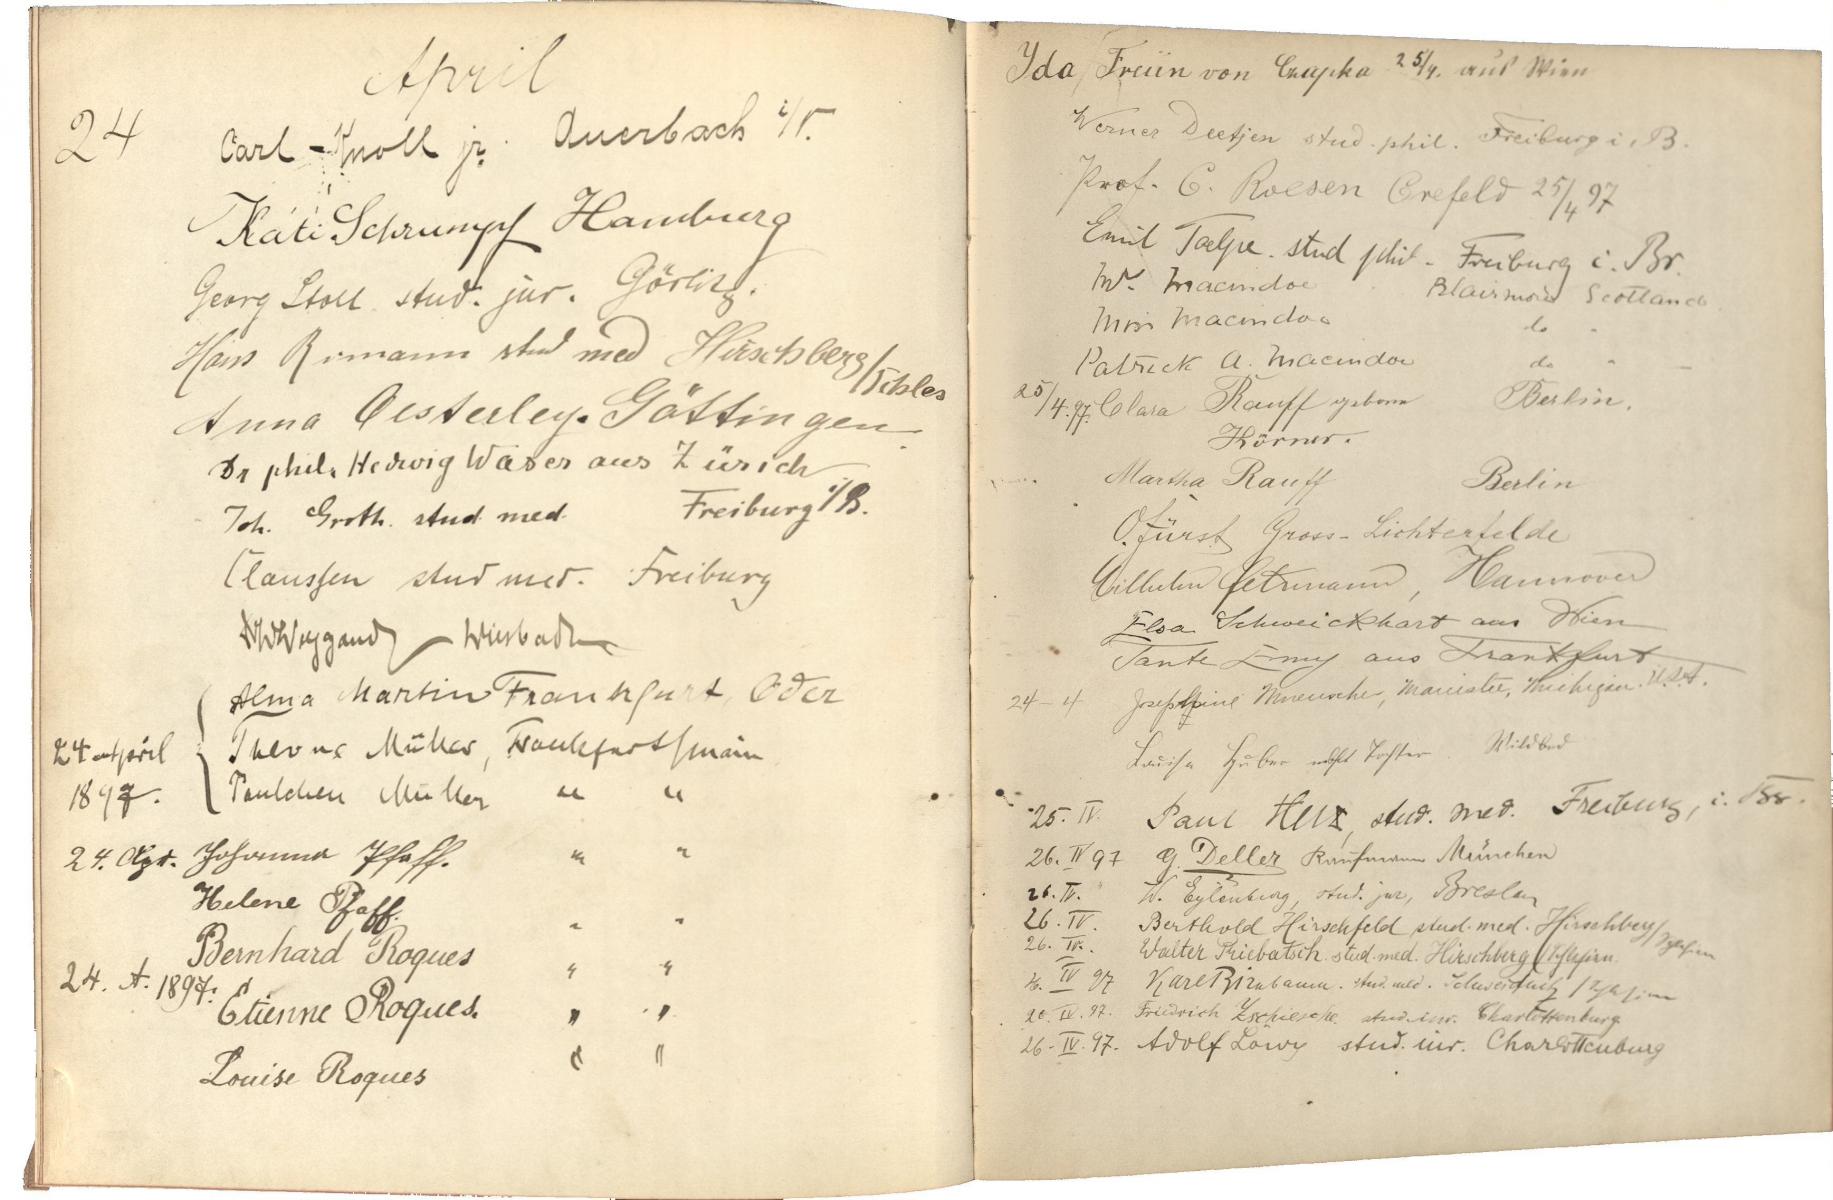 April
24 Carl Knoll jr. Auerbach i/V.
Käti Schrumpf Hamburg
Georg Stoll stud. jur. Görlitz.
Hans stud med Hirschberg/Schles
Anna Oesterley. Göttingen
Dr phil. Hedwig Waser aus Zürich
Joh. Groth. stud med. Freiburg i/B.
Claussen stud med. Freiburg
Weygandt Wiesbaden
Alma Martin Frankfurt, Oder
24 April Müller, Frankfurt/Main
1897. Paulchen Müller " "
24. Apr. Johanna Pfaff. " "
Helene Pfaff. " "
Bernhard Roques " "
24. A. 1897. Etienne Roques. " "
Louise Roques " "
Ida Freiin von Czapka 25/4. aus Wien
Werner Deetjen stud. phil. Freiburg i. B.
Prof. C. Roesen Crefeld 25/4 97
Emil stud phil. Freiburg i. Br.
Mr. Macindoe Blairmore Scotland
Miss Macindoe do "
Patrick A. Macindoe do "
25/4.97. Clara Rauff geborne Berlin.
Körner.
Martha Rauff Berlin
O. Fürst Gross-Lichterfelde
Wilhelm Petermann, Hannover
Elsa Schweickhart aus Wien
Tante Emy aus Frankfurt
24-4 Josephine, Manistee, Michigan. U.S.A.
Louise Huber nebst Tochter Wildbad
25. IV. Paul, stud. med. Freiburg, i. Br.
26. IV 97 G. Deller Kaufmann München
26. IV. W. Eylenburg, stud. jur, Breslau
26. IV. Berthold Hirschfeld stud. med. Hirschberg/Schlesien
26. IV. Walter Priebatsch stud. med. Hirschberg/Schlesien
26. IV 97 Karl Birnbaum. stud. med. Schweidnitz/Schlesien
26. IV. 97. Friedrich Zschiesche stud. iur. Charlottenburg
26. IV. 97. Adolf Löwy stud. iur. Charlottenburg